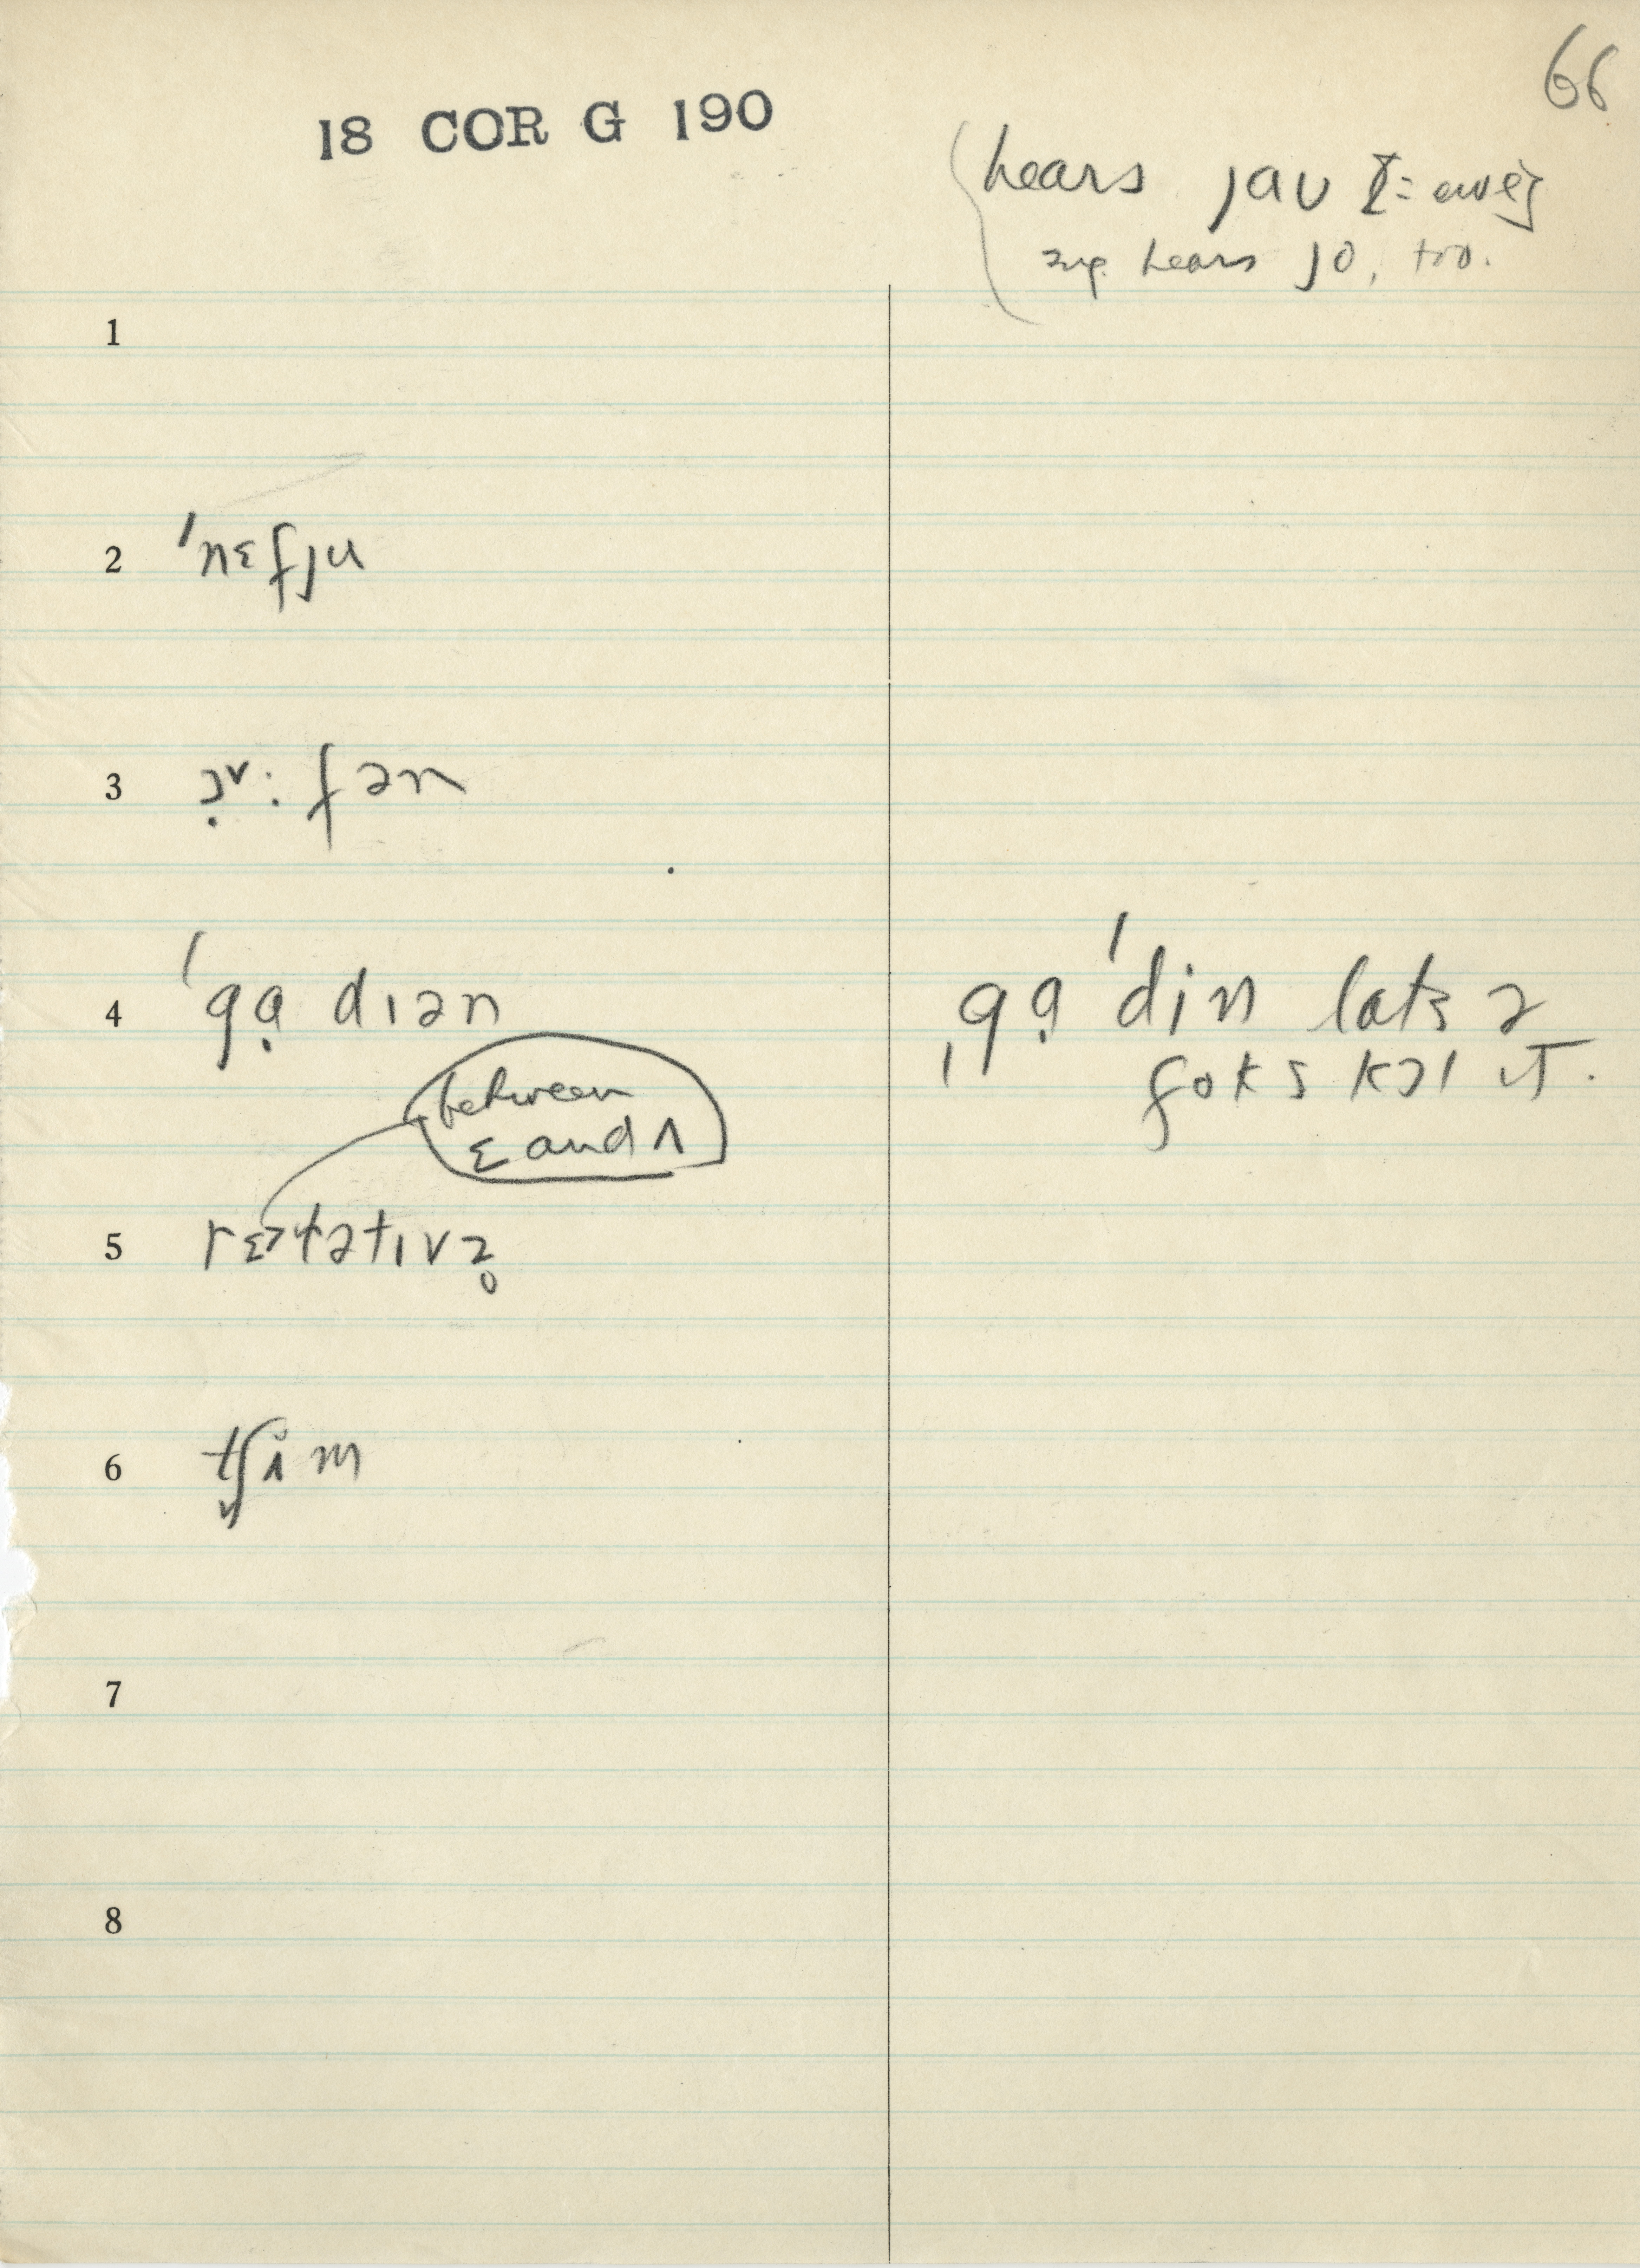 66
18 COR G 190
hears jaʊ
hears jo, too.
1
2 ˈnɛfju
3 ɔ̣ᵛ: fən
4 ˈgạ dɪən ˌgạ ˈdin lats ə
foks kɔl ɪT.
between
ɛ and ʌ
5 rɛʌtətɪvz̥
6 tʃɪ̌m
7
8